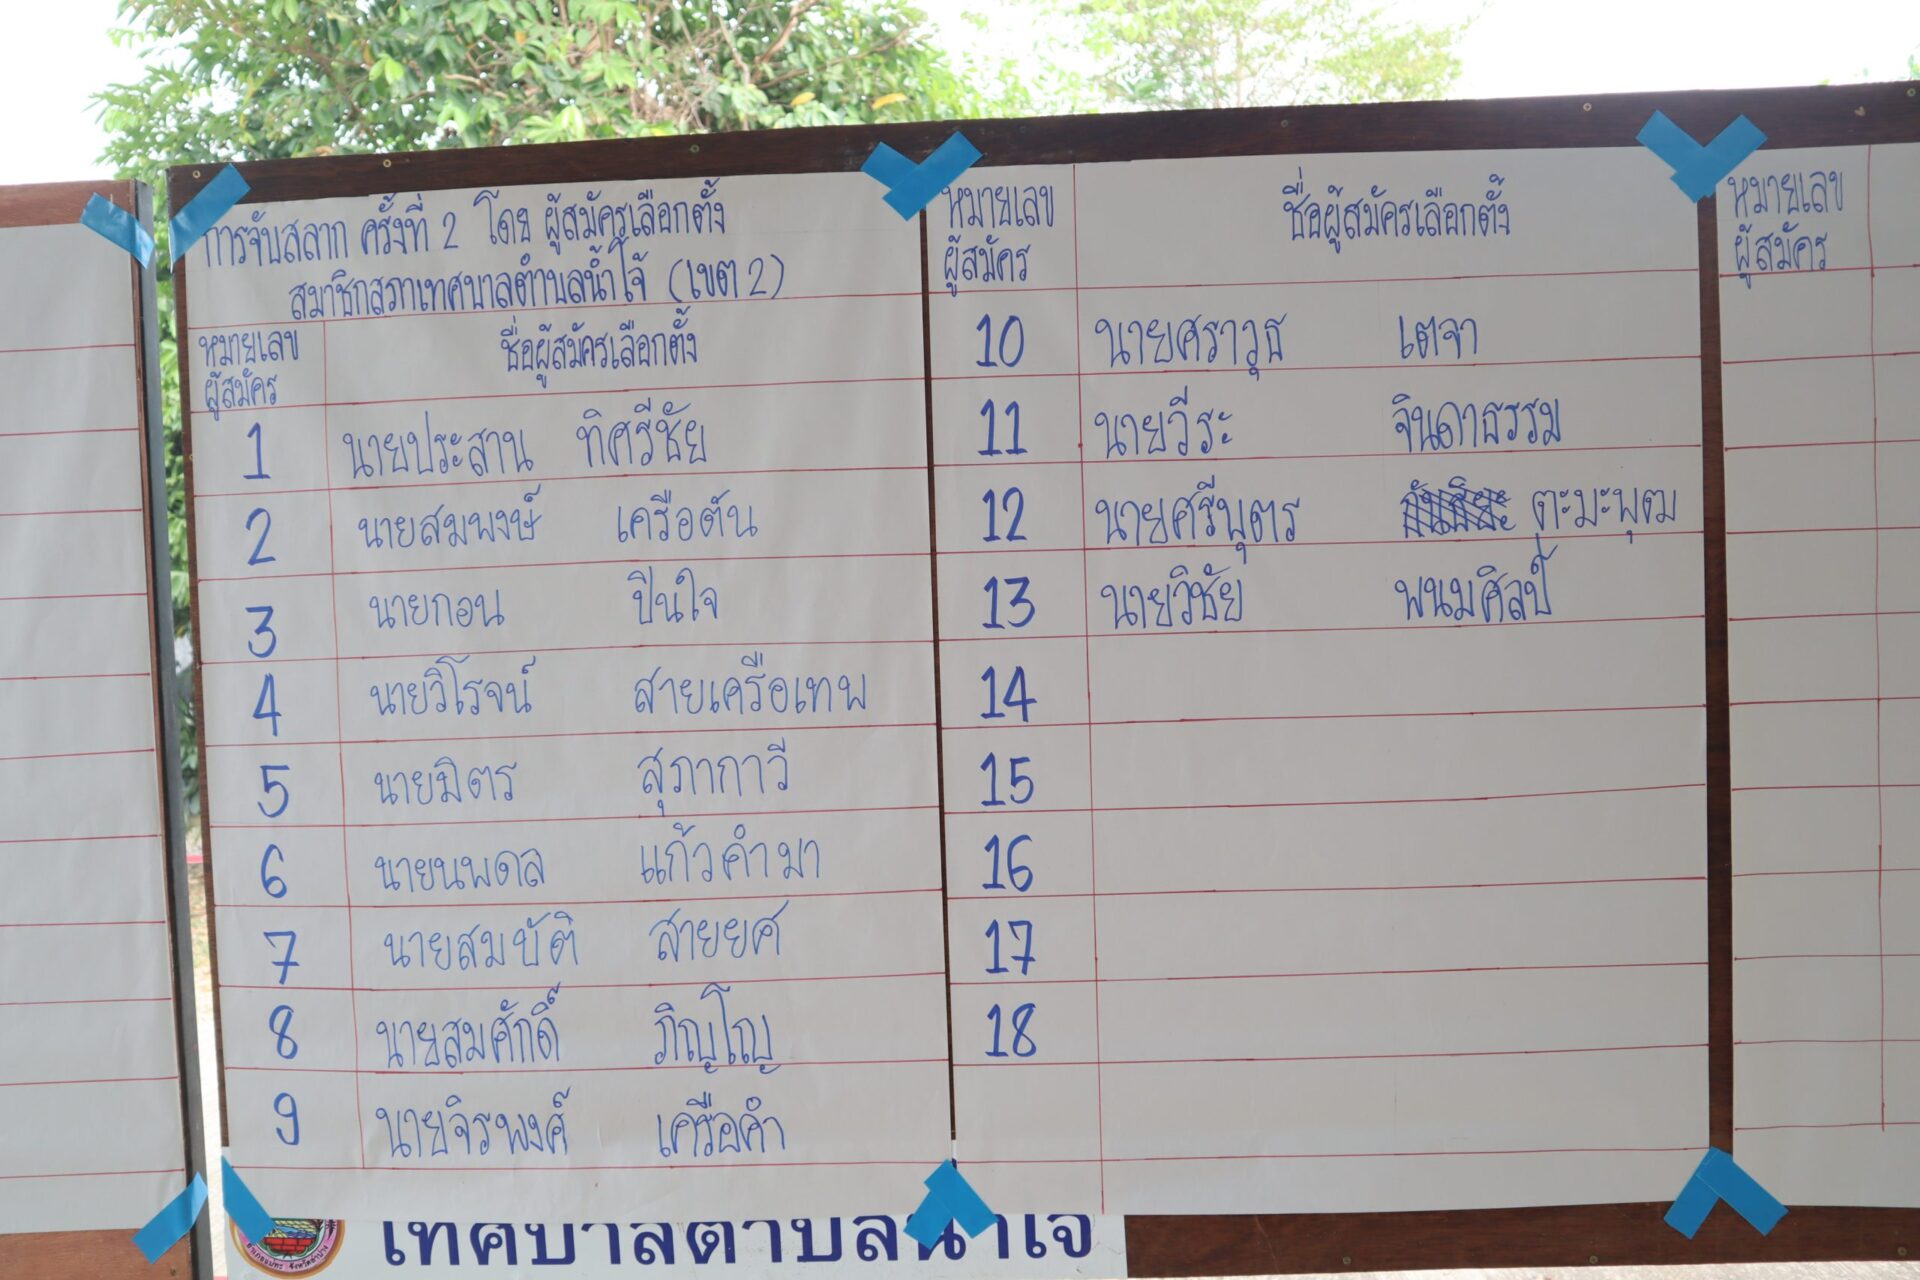 การจับสลาก ครั้งที่ 2 โดย ผู้สมัครเลือกตั้ง
สมาชิกสภาเทศบาลตำบลน้ำโจ้ (เขต 2)
หมายเลขผู้สมัคร ชื่อผู้สมัครเลือกตั้ง
1 นายประสาน ทิศรีชัย
2 นายสมพงษ์ เครือต้น
3 นายกอน ปีนใจ
4 นายวิโรจน์ สายเครือเทพ
5 นายมิตร สุภากาวี
6 นายนพดล แก้วคำมา
7 นายสมบัติ สายยศ
8 นายสมศักดิ์ ภิญโญ
9 นายจิรพงศ์ เครือคำ
หมายเลขผู้สมัคร ชื่อผู้สมัครเลือกตั้ง
10 นายศราวุธ เตจา
11 นายวีระ จินดาธรรม
12 นายศรีบุตร ตะมะพุฒ
13 นายวิชัย พนมศิลป์
14
15
16
17
18
หมายเลข
ผู้สมัคร
เทศบาลตำบลน้ำโจ้